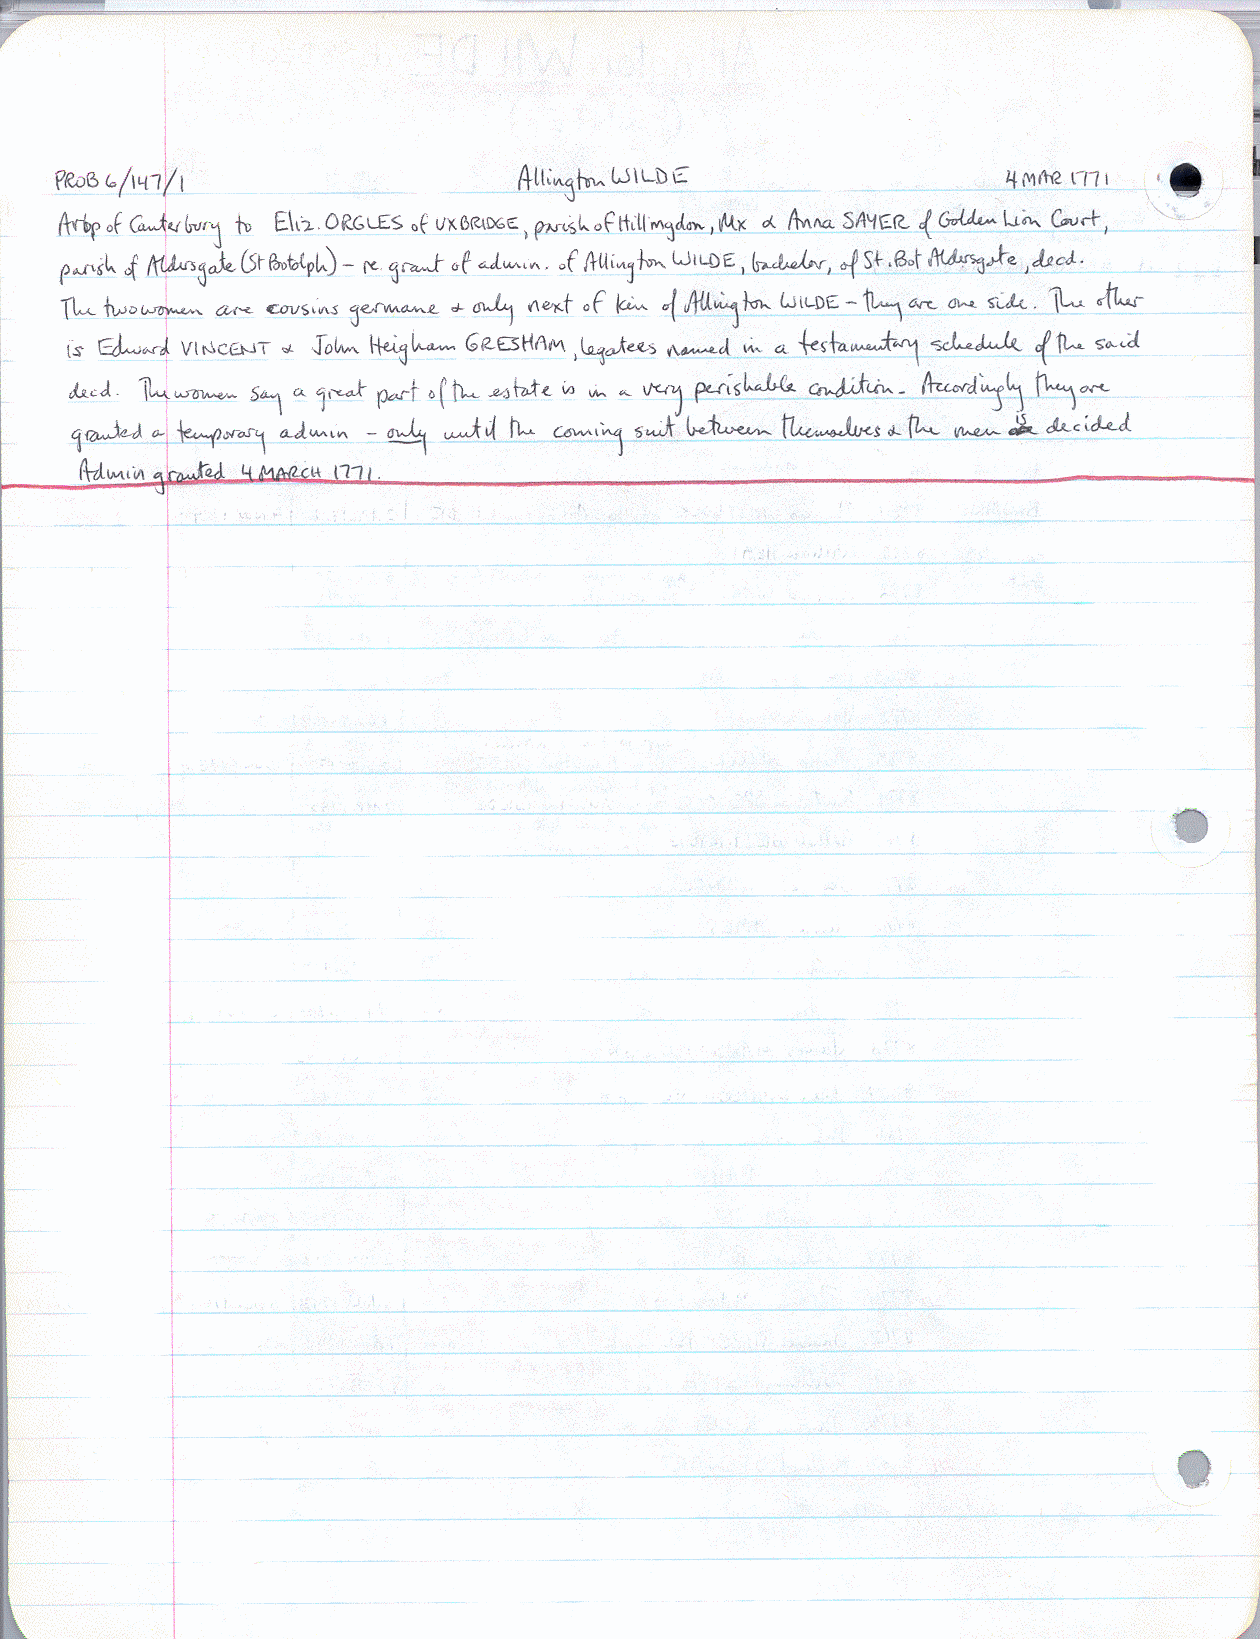 PROB 6/147/1 Allington WILDE 4 MAR 1771
Arbp of Canterbury to Eliz. ORGLES of UXBRIDGE, parish of Hillingdon, Mx & Anna SAYER of Golden Lion Court,
parish of Aldersgate (St Botolph) – re. grant of admin. of Allington WILDE, bachelor, of St. Bot Aldersgate, decd.
The two women are cousins germane & only next of kin of Allington WILDE – they are one side. The other
is Edward VINCENT & John Heigham GRESHAM, legatees named in a testamentary schedule of the said
decd. The women say a great part of the estate is in a very perishable condition. Accordingly they are
granted a temporary admin – only until the coming suit between themselves & the men is decided
Admin granted 4 MARCH 1771.